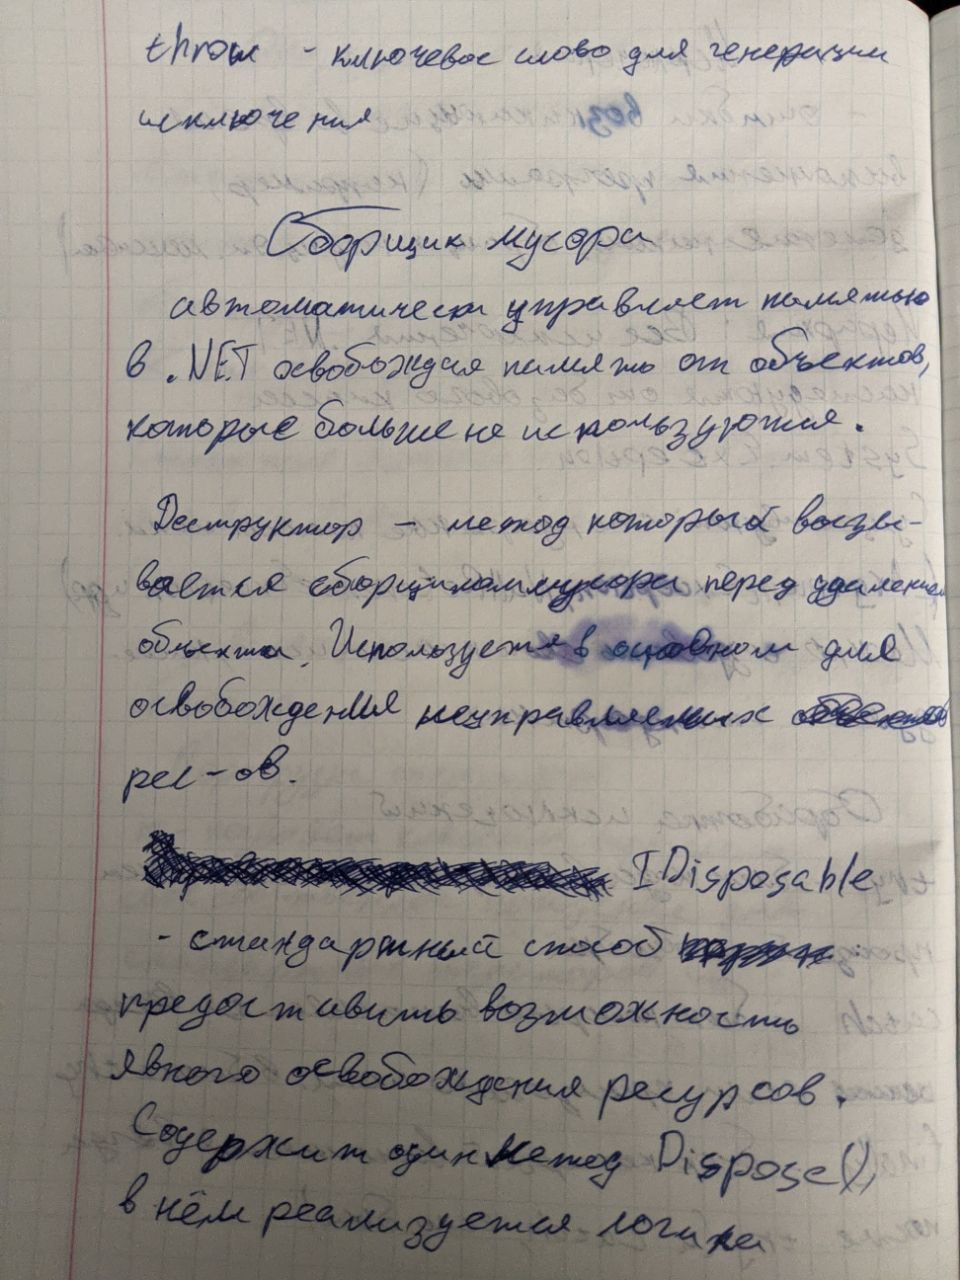 throw - ключевое слово для генерации
исключения
Сборщик мусора
автоматически управляет памятью
в .NET освобождая память от объектов,
которые больше не используются.
Деструктор - метод который вызы-
вается сборщиком мусора перед удалением
объекта. Используется в основном для
освобождения неуправляемых
рес-ов.
IDisposable
- стандартный способ
предоставить возможность
явного освобождения ресурсов.
Содержит один метод Dispose(),
в нём реализуется логика